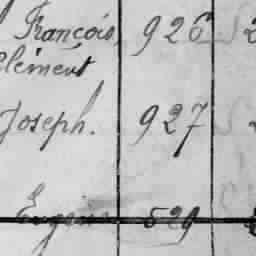 François, 926 2
Clément
Joseph. 927 2
Eugène 529